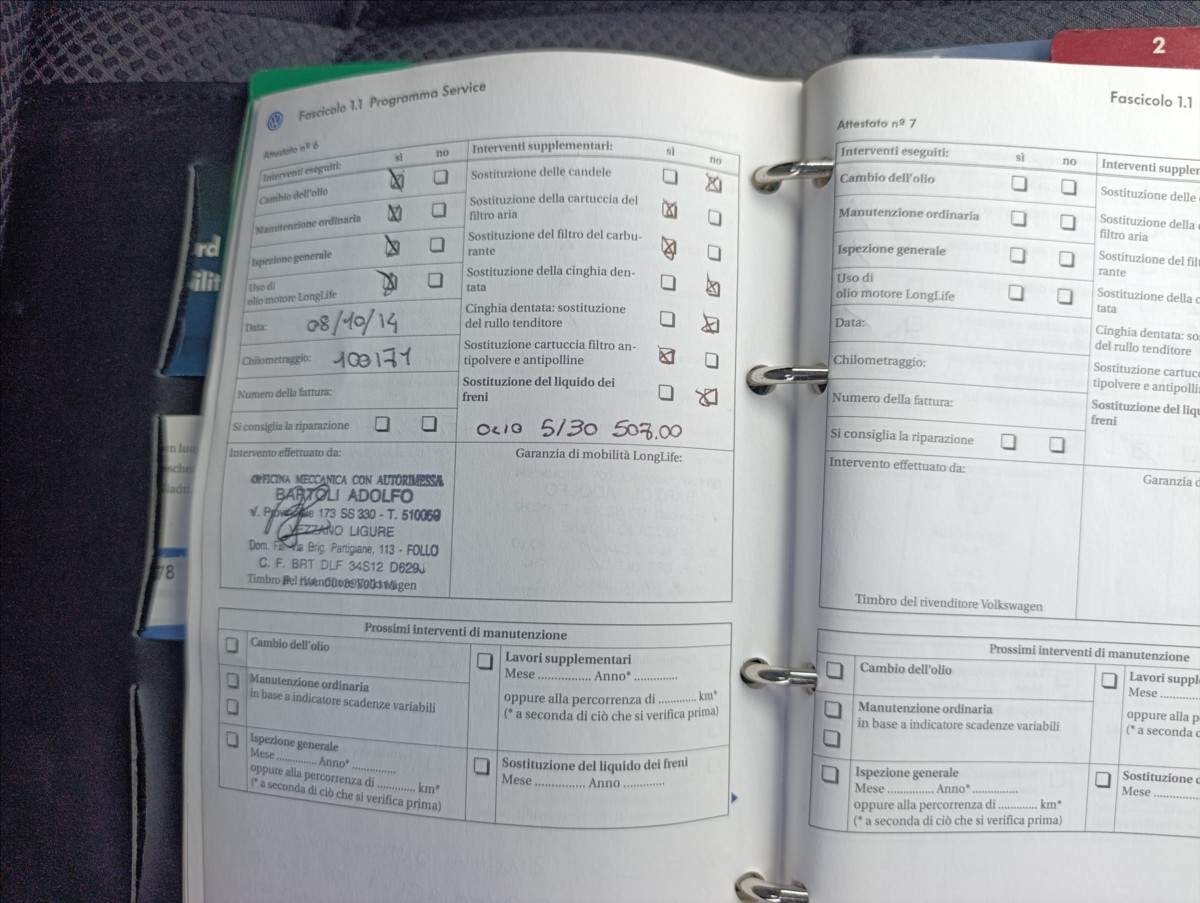 2
Fascicolo 1.1 Programma Service
Attestato nº 6
Interventi eseguiti:
sì
no
Cambio dell'olio
Manutenzione ordinaria
Ispezione generale
Uso di
olio motore LongLife
Data:
08/10/14
Chilometraggio:
103171
Numero della fattura:
Si consiglia la riparazione
Interventi supplementari:
sì
no
Sostituzione delle candele
Sostituzione della cartuccia del
filtro aria
Sostituzione del filtro del carbu-
rante
Sostituzione della cinghia den-
tata
Cinghia dentata: sostituzione
del rullo tenditore
Sostituzione cartuccia filtro an-
tipolvere e antipolline
Sostituzione del liquido dei
freni
5/30 507.00
Intervento effettuato da:
OFFICINA MECCANICA CON AUTORIMESSA
BARTOLI ADOLFO
173 SS 330 - T. 510069
VEZZANO LIGURE
Dom. Brig. Partigiane, 113 - FOLLO
C. F. BRT DLF 34S12 D629J
Timbro del
Garanzia di mobilità LongLife:
Prossimi interventi di manutenzione
Cambio dell'olio
Manutenzione ordinaria
in base a indicatore scadenze variabili
Ispezione generale
Mese ............ Anno* ............
oppure alla percorrenza di ............ km*
(* a seconda di ciò che si verifica prima)
Lavori supplementari
Mese ............ Anno* ............
oppure alla percorrenza di ............ km*
(* a seconda di ciò che si verifica prima)
Sostituzione del liquido dei freni
Mese ............ Anno ............
Fascicolo 1.1
Attestato nº 7
Interventi eseguiti:
sì
no
Cambio dell'olio
Manutenzione ordinaria
Ispezione generale
Uso di
olio motore LongLife
Data:
Chilometraggio:
Numero della fattura:
Si consiglia la riparazione
Intervento effettuato da:
Timbro del rivenditore Volkswagen
Interventi suppler
Sostituzione delle
Sostituzione della
filtro aria
Sostituzione del filt
rante
Sostituzione della c
tata
Cinghia dentata: so
del rullo tenditore
Sostituzione cartucc
tipolvere e antipolli
Sostituzione del liqu
freni
Garanzia d
Prossimi interventi di manutenzione
Cambio dell'olio
Manutenzione ordinaria
in base a indicatore scadenze variabili
Ispezione generale
Mese ............ Anno* ............
oppure alla percorrenza di ............ km*
(* a seconda di ciò che si verifica prima)
Lavori suppl
Mese ............
oppure alla p
(* a seconda d
Sostituzione d
Mese ............
rd
ilit
78